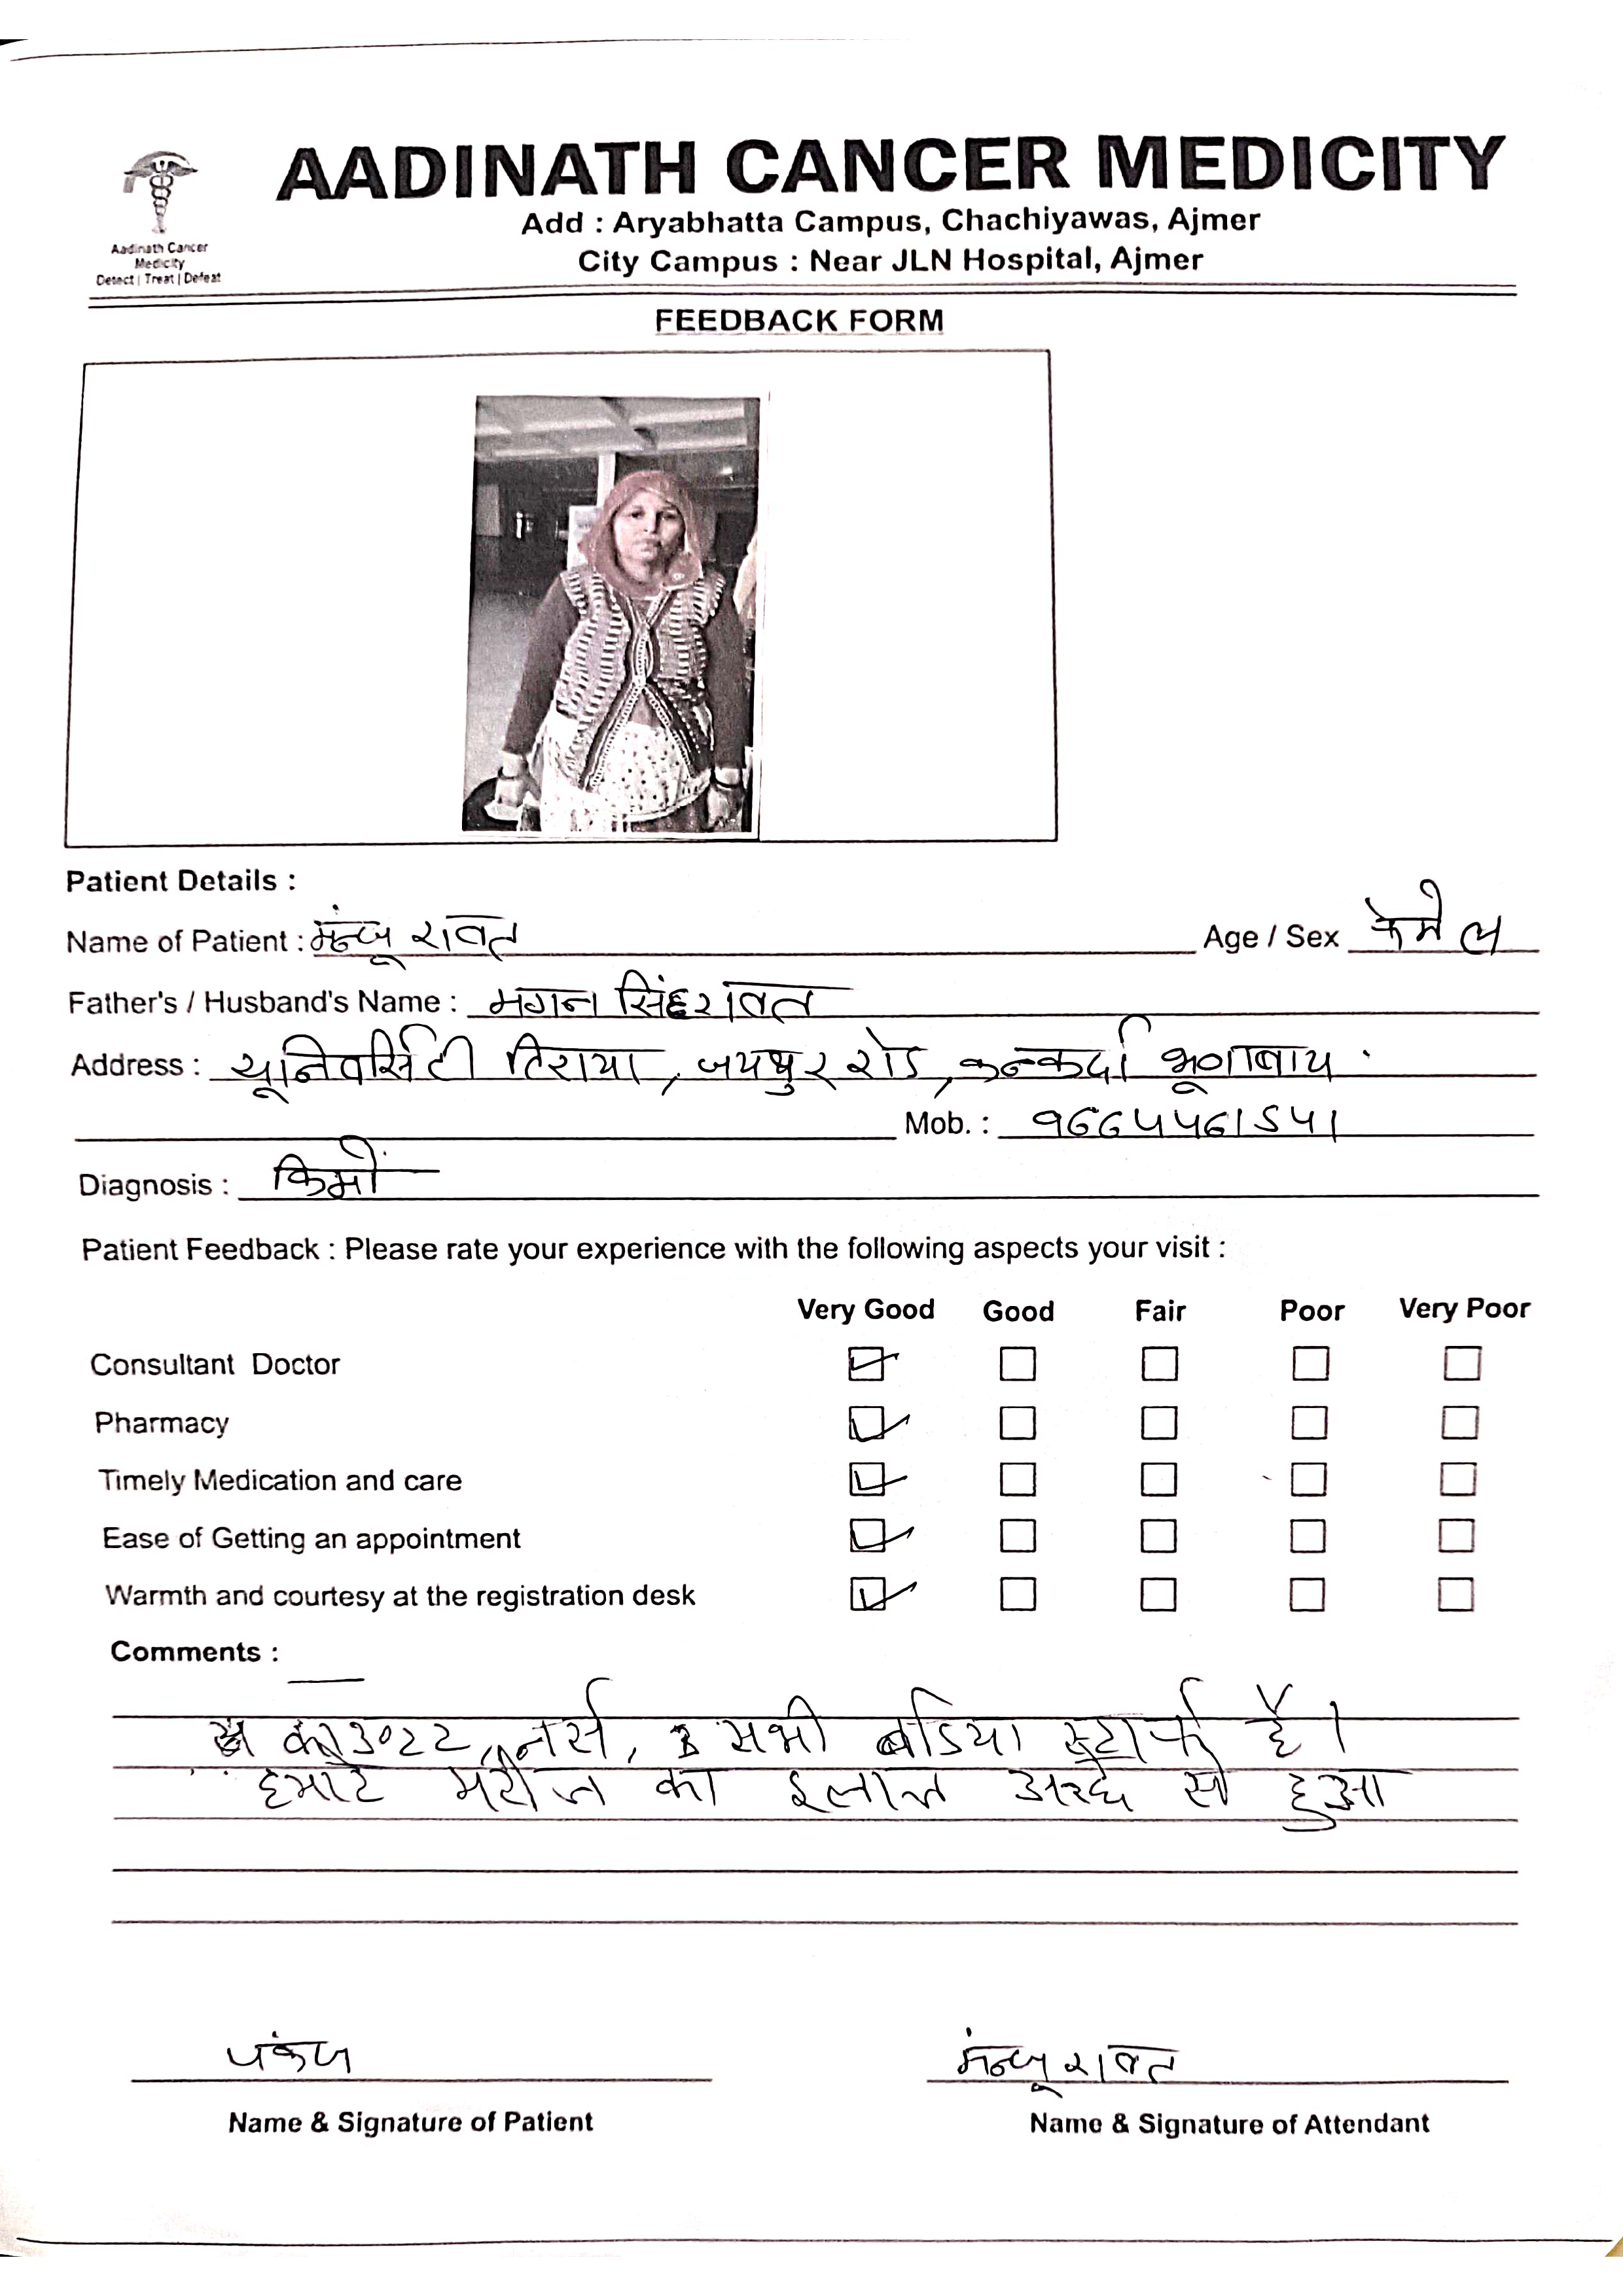 AADINATH CANCER MEDICITY
Add : Aryabhatta Campus, Chachiyawas, Ajmer
City Campus : Near JLN Hospital, Ajmer
Aadinath Cancer
Medicity
Detect | Treat | Defeat
FEEDBACK FORM
Patient Details :
Name of Patient : मंन्जू रावत Age / Sex फेमेल
Father's / Husband's Name : मगन सिंह रावत
Address : यूनिवर्सिटी तिराया, जयपुर रोड, भूणाबाय
Mob. : 9664461541
Diagnosis : किमों
Patient Feedback : Please rate your experience with the following aspects your visit :
Very Good Good Fair Poor Very Poor
Consultant Doctor
Pharmacy
Timely Medication and care
Ease of Getting an appointment
Warmth and courtesy at the registration desk
Comments :
काउण्टर, नर्स, सभी बडिया स्टार्फ है।
हमारे मरीज का इलाज अच्छे से हुआ
पंकज मंन्जू रावत
Name & Signature of Patient Name & Signature of Attendant